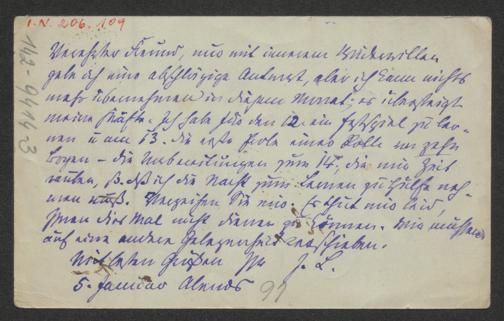 I.N. 206.109
142-9414-3
Verehrter Freund, nur mit innerem Widerwillen
gebe ich eine abschlägige Antwort, aber ich kann nichts
mehr übernehmen in diesem Monat; es übersteigt
meine Kräfte. Ich habe für den 12. ein Festspiel zu ler-
nen u am 13. die erste Probe einer Rolle von zehn
Bogen – die Vorbereitungen zum 14. die mir Zeit
rauben, so daß ich die Nacht zum Lernen zu Hülfe neh-
men muß. Verzeihen Sie mir. Es thut mir leid,
Ihnen dies Mal nicht dienen zu können. Wir müssen
auf eine andere Gelegenheit verschieben.
Mit besten Grüßen Ihr J. L.
5. Januar Abends
99